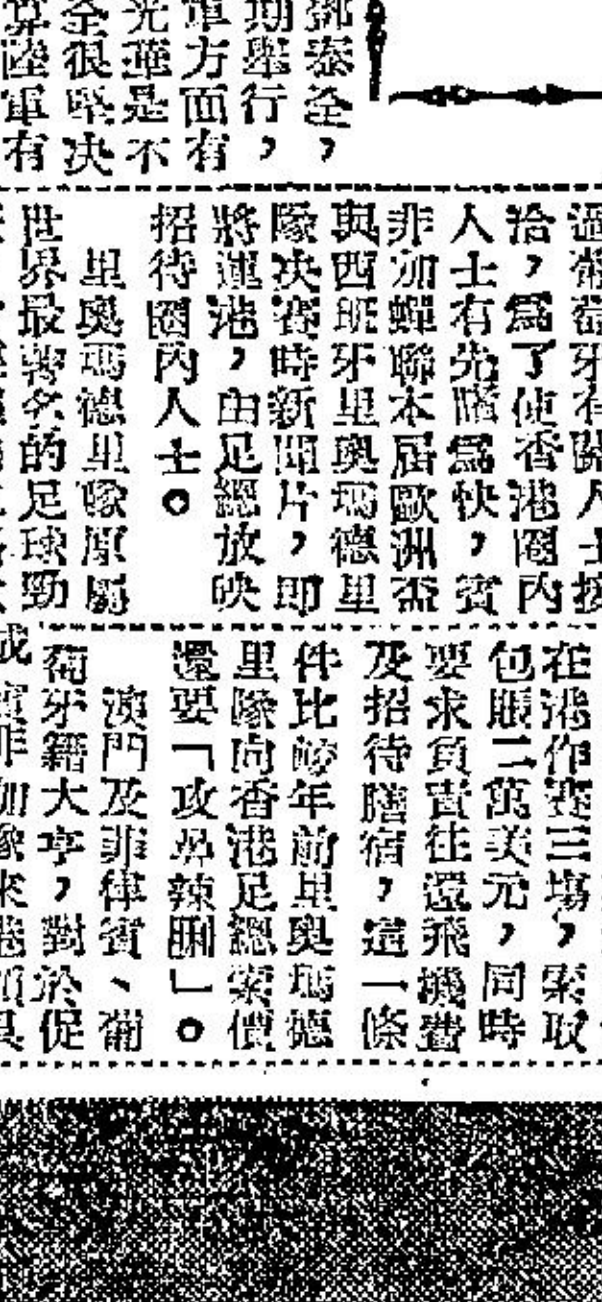 鄧泰全，
期舉行，
軍方面有
光華是不
全很堅决
算陸軍有
過葡萄牙有關人士接
洽，爲了使香港圈内
人士有先睹爲快，賓
非加蟬聯本屆歐洲盃
與西班牙里奧瑪德里
隊决賽時新聞片，即
將運港，由足總放映
招待圈内人士。
里奧瑪德里隊原屬
世界最著名的足球勁
在港作賽三塲，索取
包賬二萬美元，同時
要求負責往還飛機費
及招待膳宿，這一條
件比幾年前里奧瑪德
里隊向香港足總索價
還要「攻鼻辣脷」。
澳門及菲律賓、葡
萄牙籍大亨，對於促
成賓非加隊來港